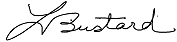 L Bustard